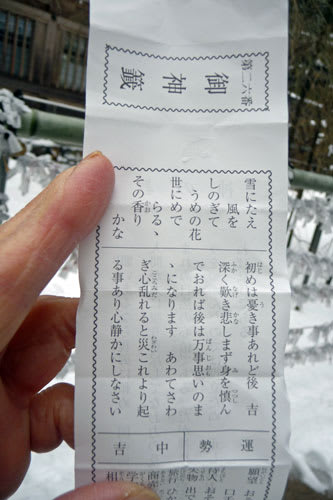 第二六番
御神籤
雪にたえ
風を
しのぎて
うめの花
世にめで
らるゝ
その香り
かな
初めは憂き事あれど後 吉
深く歎き悲しまず身を慎ん
でおれば後は万事思いのま
ゝになります あわてさわ
ぎ心乱れると災これより起
る事あり心静かにしなさい
運勢
中吉
願望